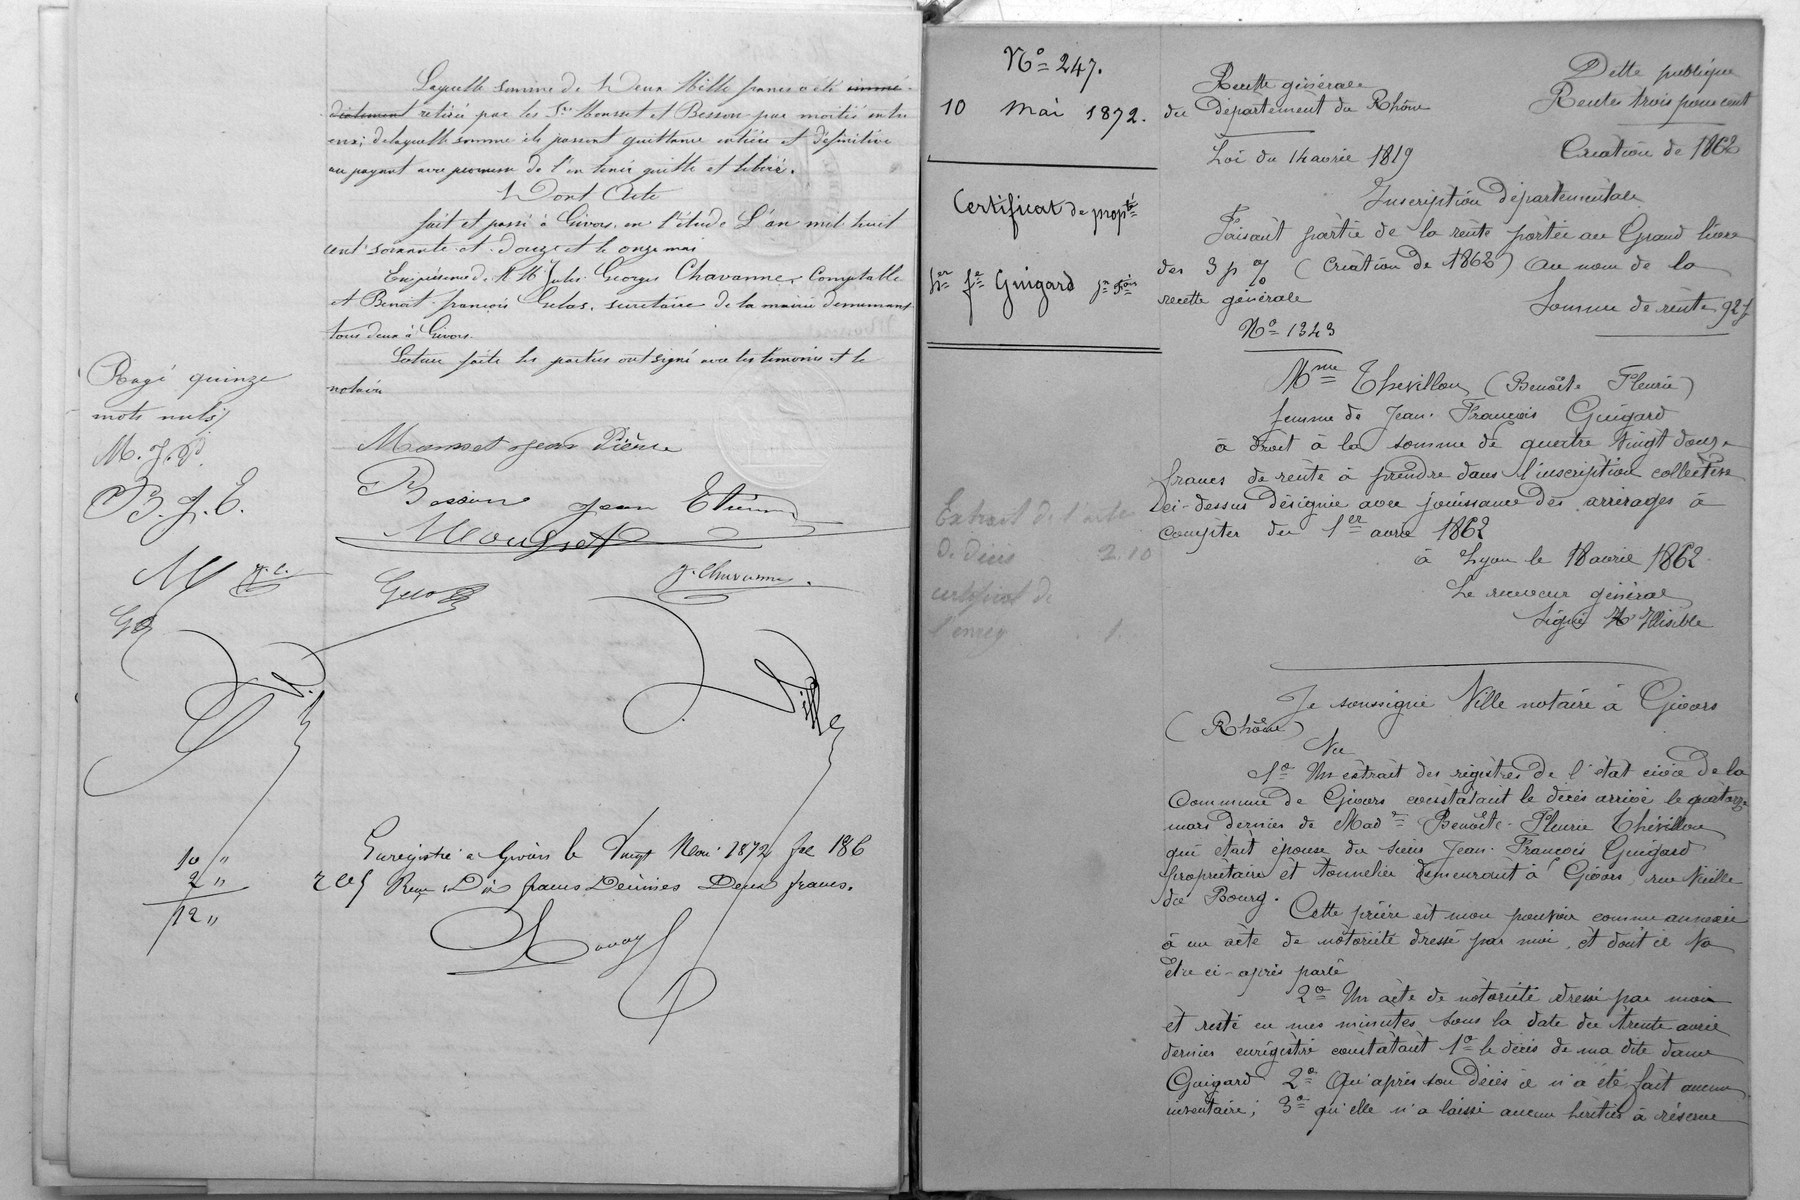 Laquelle somme de Deux Mille francs a été immé-
diatement retirée par les Srs Mousset et Besson par moitié entre
eux; de laquelle somme ils passent quittance entière et définitive
au payant avec promesse de l'en tenir quitte et libéré.
Dont Acte
fait et passé à Givors en l'étude L'an mil huit
cent soixante et douze et le onze mai
En présence de MM. Jules Georges Chavanne, Comptable
et Benoit françois Gelas, secrétaire de la mairie demeurant
tous deux à Givors.
Lecture faite les parties ont signé avec les témoins et le
notaire
Rayé quinze
mots nuls
M. J. P.
B. J. E.
Mousset Jean Pierre
Besson Jean Etienne
Mousset
J. Chavanne
Gelas
J. C.
Enregistré à Givors le Vingt Mai 1872 fol 186
Reçu Dix francs Décimes Deux francs.
10 "
2 "
12 "
No 247.
10 Mai 1872.
Certificat de propté
Guigard
Extrait de l'acte
de décès 2.10
certificat de
l'enreg 1.
Recette générale
du Département du Rhône
Dette publique
Rentes trois pour cent
Loi du 14 avril 1819
Création de 1862
Inscription départementale
Faisant partie de la rente portée au Grand livre
des 3 p % (Création de 1862) au nom de la
recette générale
Somme de rente 92 f
No 1343
Mme Thévillon (Benoîte Fleurie)
femme de Jean-François Guigard
à droit à la somme de quatre vingt douze
francs de rente à prendre dans l'inscription collective
ci-dessus désignée avec jouissance des arrérages à
compter du 1er avril 1862
à Lyon le 18 avril 1862
Le receveur général
Signé Illisible
Je soussigné Ville notaire à Givors
(Rhône)
Vu
1o Un extrait des registres de l'état civil de la
Commune de Givors constatant le décès arrivé le quatorze
mars dernier de Made Benoîte-Fleurie Thévillon
qui était épouse du sieur Jean-François Guigard
propriétaire et tonnelier demeurant à Givors, rue Vieille
du Bourg.
Cette pièce est en mon pouvoir comme annexée
à un acte de notoriété dressé par moi, et dont il va
être ci-après parlé
2o Un acte de notoriété dressé par moi
et resté en mes minutes sous la date du trente avril
dernier enregistré constatant 1o le décès de ma dite dame
Guigard 2o Qu'après son décès il n'a été fait aucun
inventaire; 3o qu'elle n'a laissé aucun héritier à réserve